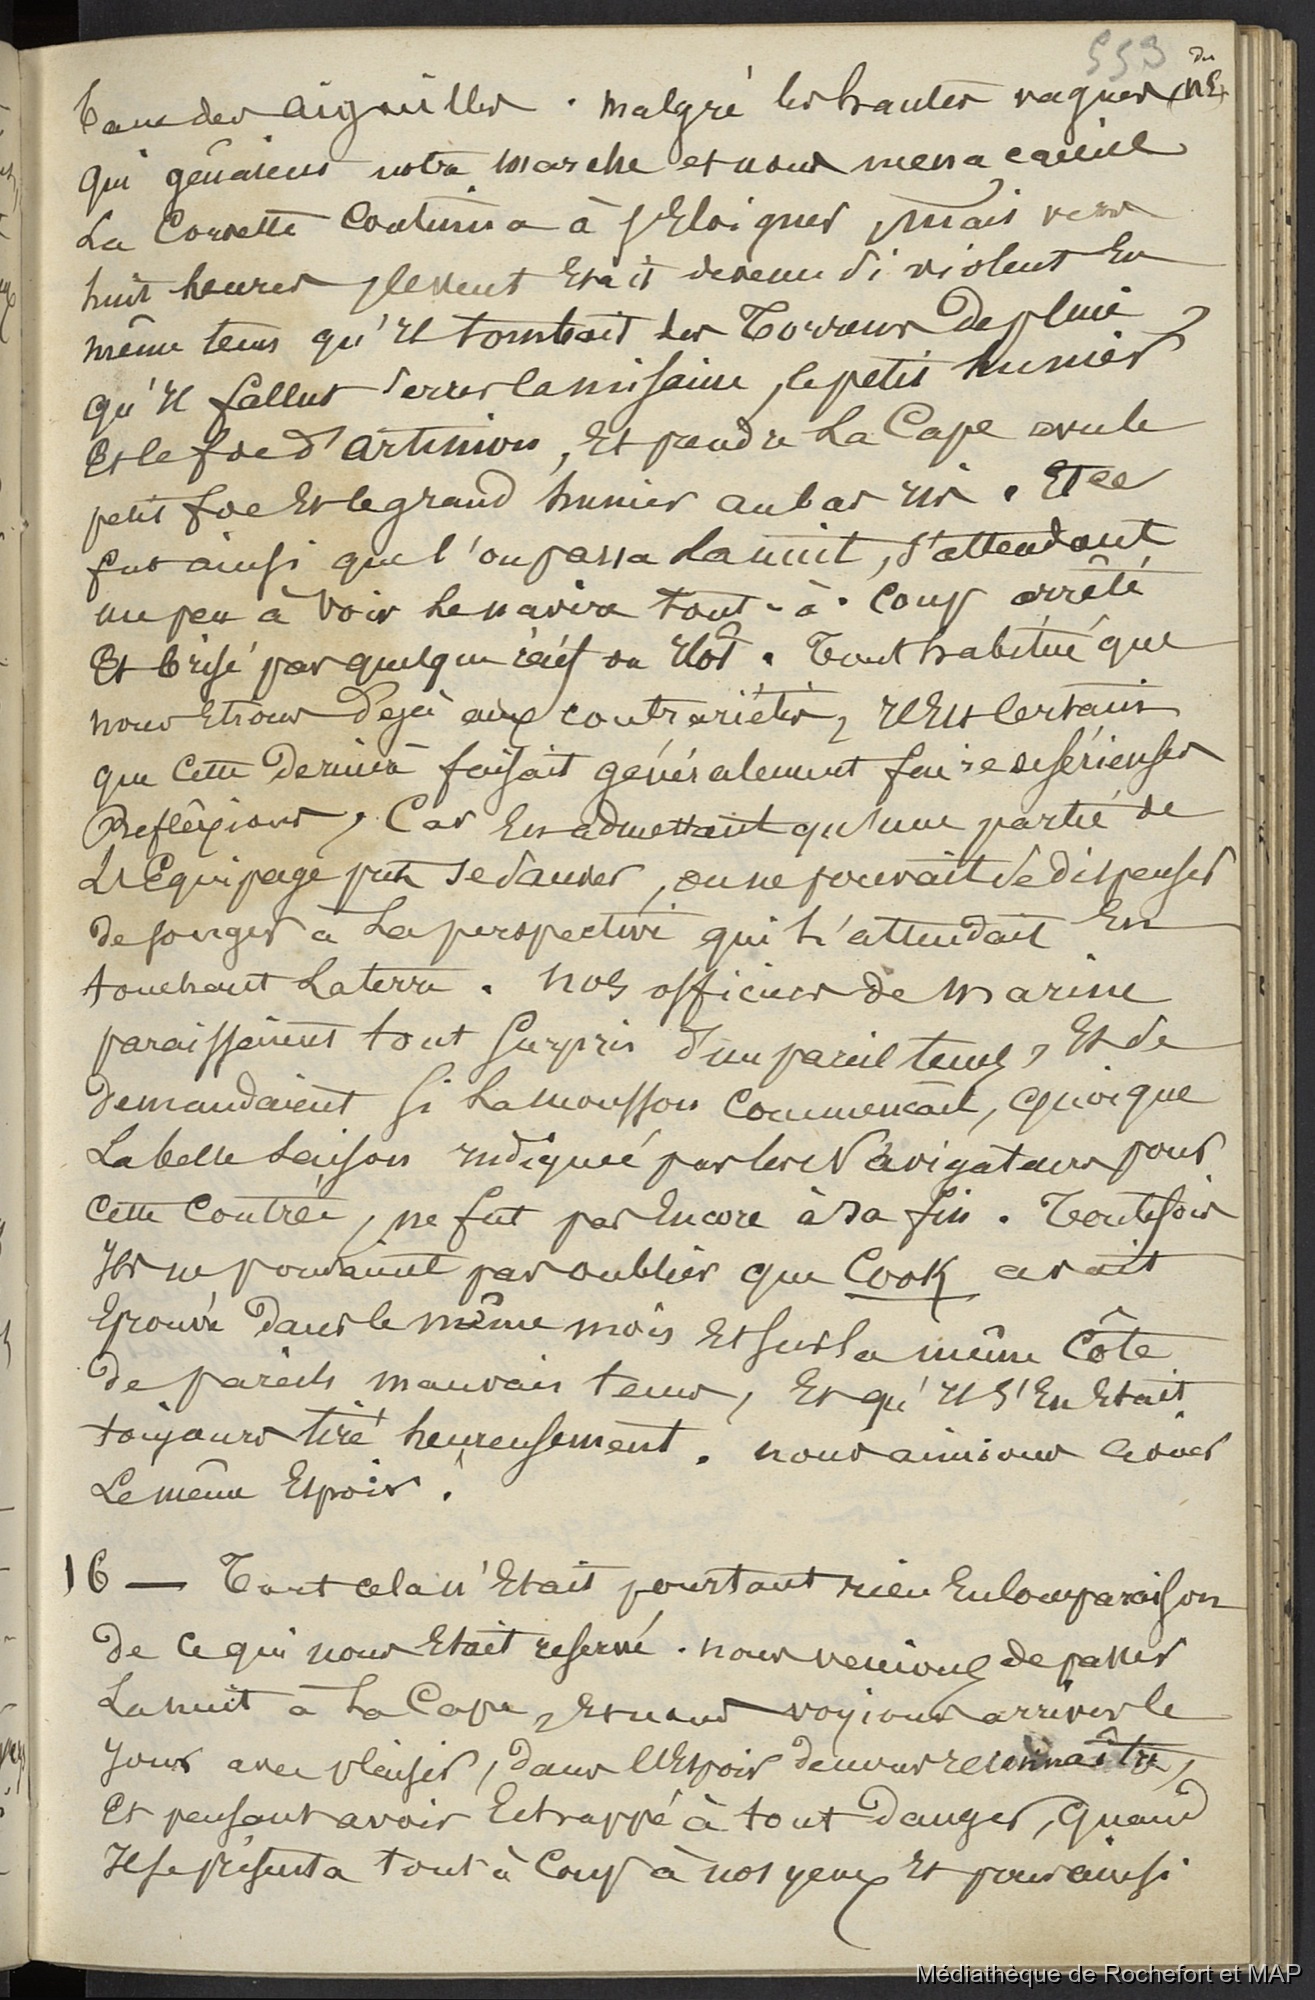 553
banc des aiguilles. malgré les hautes vagues (du NE)
qui gênaient notre marche et nous menaçaient
La Corvette continua à s'Eloigner, mais vers
huit heures, le vent Etait devenu si violent En
même tems qu'il tombait des Torrens De pluie,
qu'il fallut serrer la misaine, le petit hunier
Et le foc d'artimon, Et prendre La Cape avec le
petit foc Et le grand hunier au bas ris. Et ce
fut ainsi que l'on passa La nuit, s'attendant
un peu à voir Le navire tout-à-coup arrêté
Et brisé par quelque récif ou Ilôt. Tout habitué que
nous Etions Dejà aux contrariétés, il Est Certain
que Cette Dernière faisait généralement faire de sérieuses
Reflêxions, Car En admettant qu'une partie de
L'Equipage put se sauver, on ne pouvait se dispenser
de songer à La perspective qui L'attendait En
touchant La terre. nos officiers de marine
paraissaient tout surpris d'un pareil tems, Et se
demandaient si La mousson commençait, quoique
La belle saison indiquée par les Navigateurs pour
Cette Contrée, ne fut pas Encore à sa fin. Toutefois
Ils ne pouvaient pas oublier que Cook avait
Eprouvé Dans le même mois Et sur la même Côte
De pareils mauvais tems, Et qu'il s'En Etait
toujours tiré heureusement. nous aimions à avoir
Le même Espoir.
16 — Tout cela n'Etait pourtant rien En comparaison
De ce qui nous Etait reservé. nous venions de passer
La nuit à La Cape, Et nous voyions arriver le
jour avec plaisir, dans l'Espoir de nous reconnaître,
Et pensant avoir Echappé à tout Danger, quand
Il se présenta tout à Coup à nos yeux Et pour ainsi
Médiathèque de Rochefort et MAP